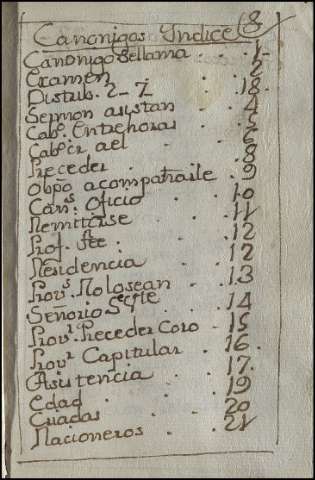 Canonigos Indice 8
Canonigo Sellama . . 1
Examen . . 2
Distrib. 2-7 . . 18
Sermon asistan . 4
Cabº. Entrehoras . 5
Cabº ir ael . . 6
Preceder . . 8
Obpo acompañaile . 9
Canˢ. Oficio . . 10
Remitirse . . 11
Prof. . . 12
Residencia . . 12
Provˢ. Nolosean . . 13
Señorio . 14
Provʳ. Preceder Coro . 15
Provʳ Capitular . 16
Asistencia . . 17
Edad . . 19
Criadas . . 20
Racioneros . . 21